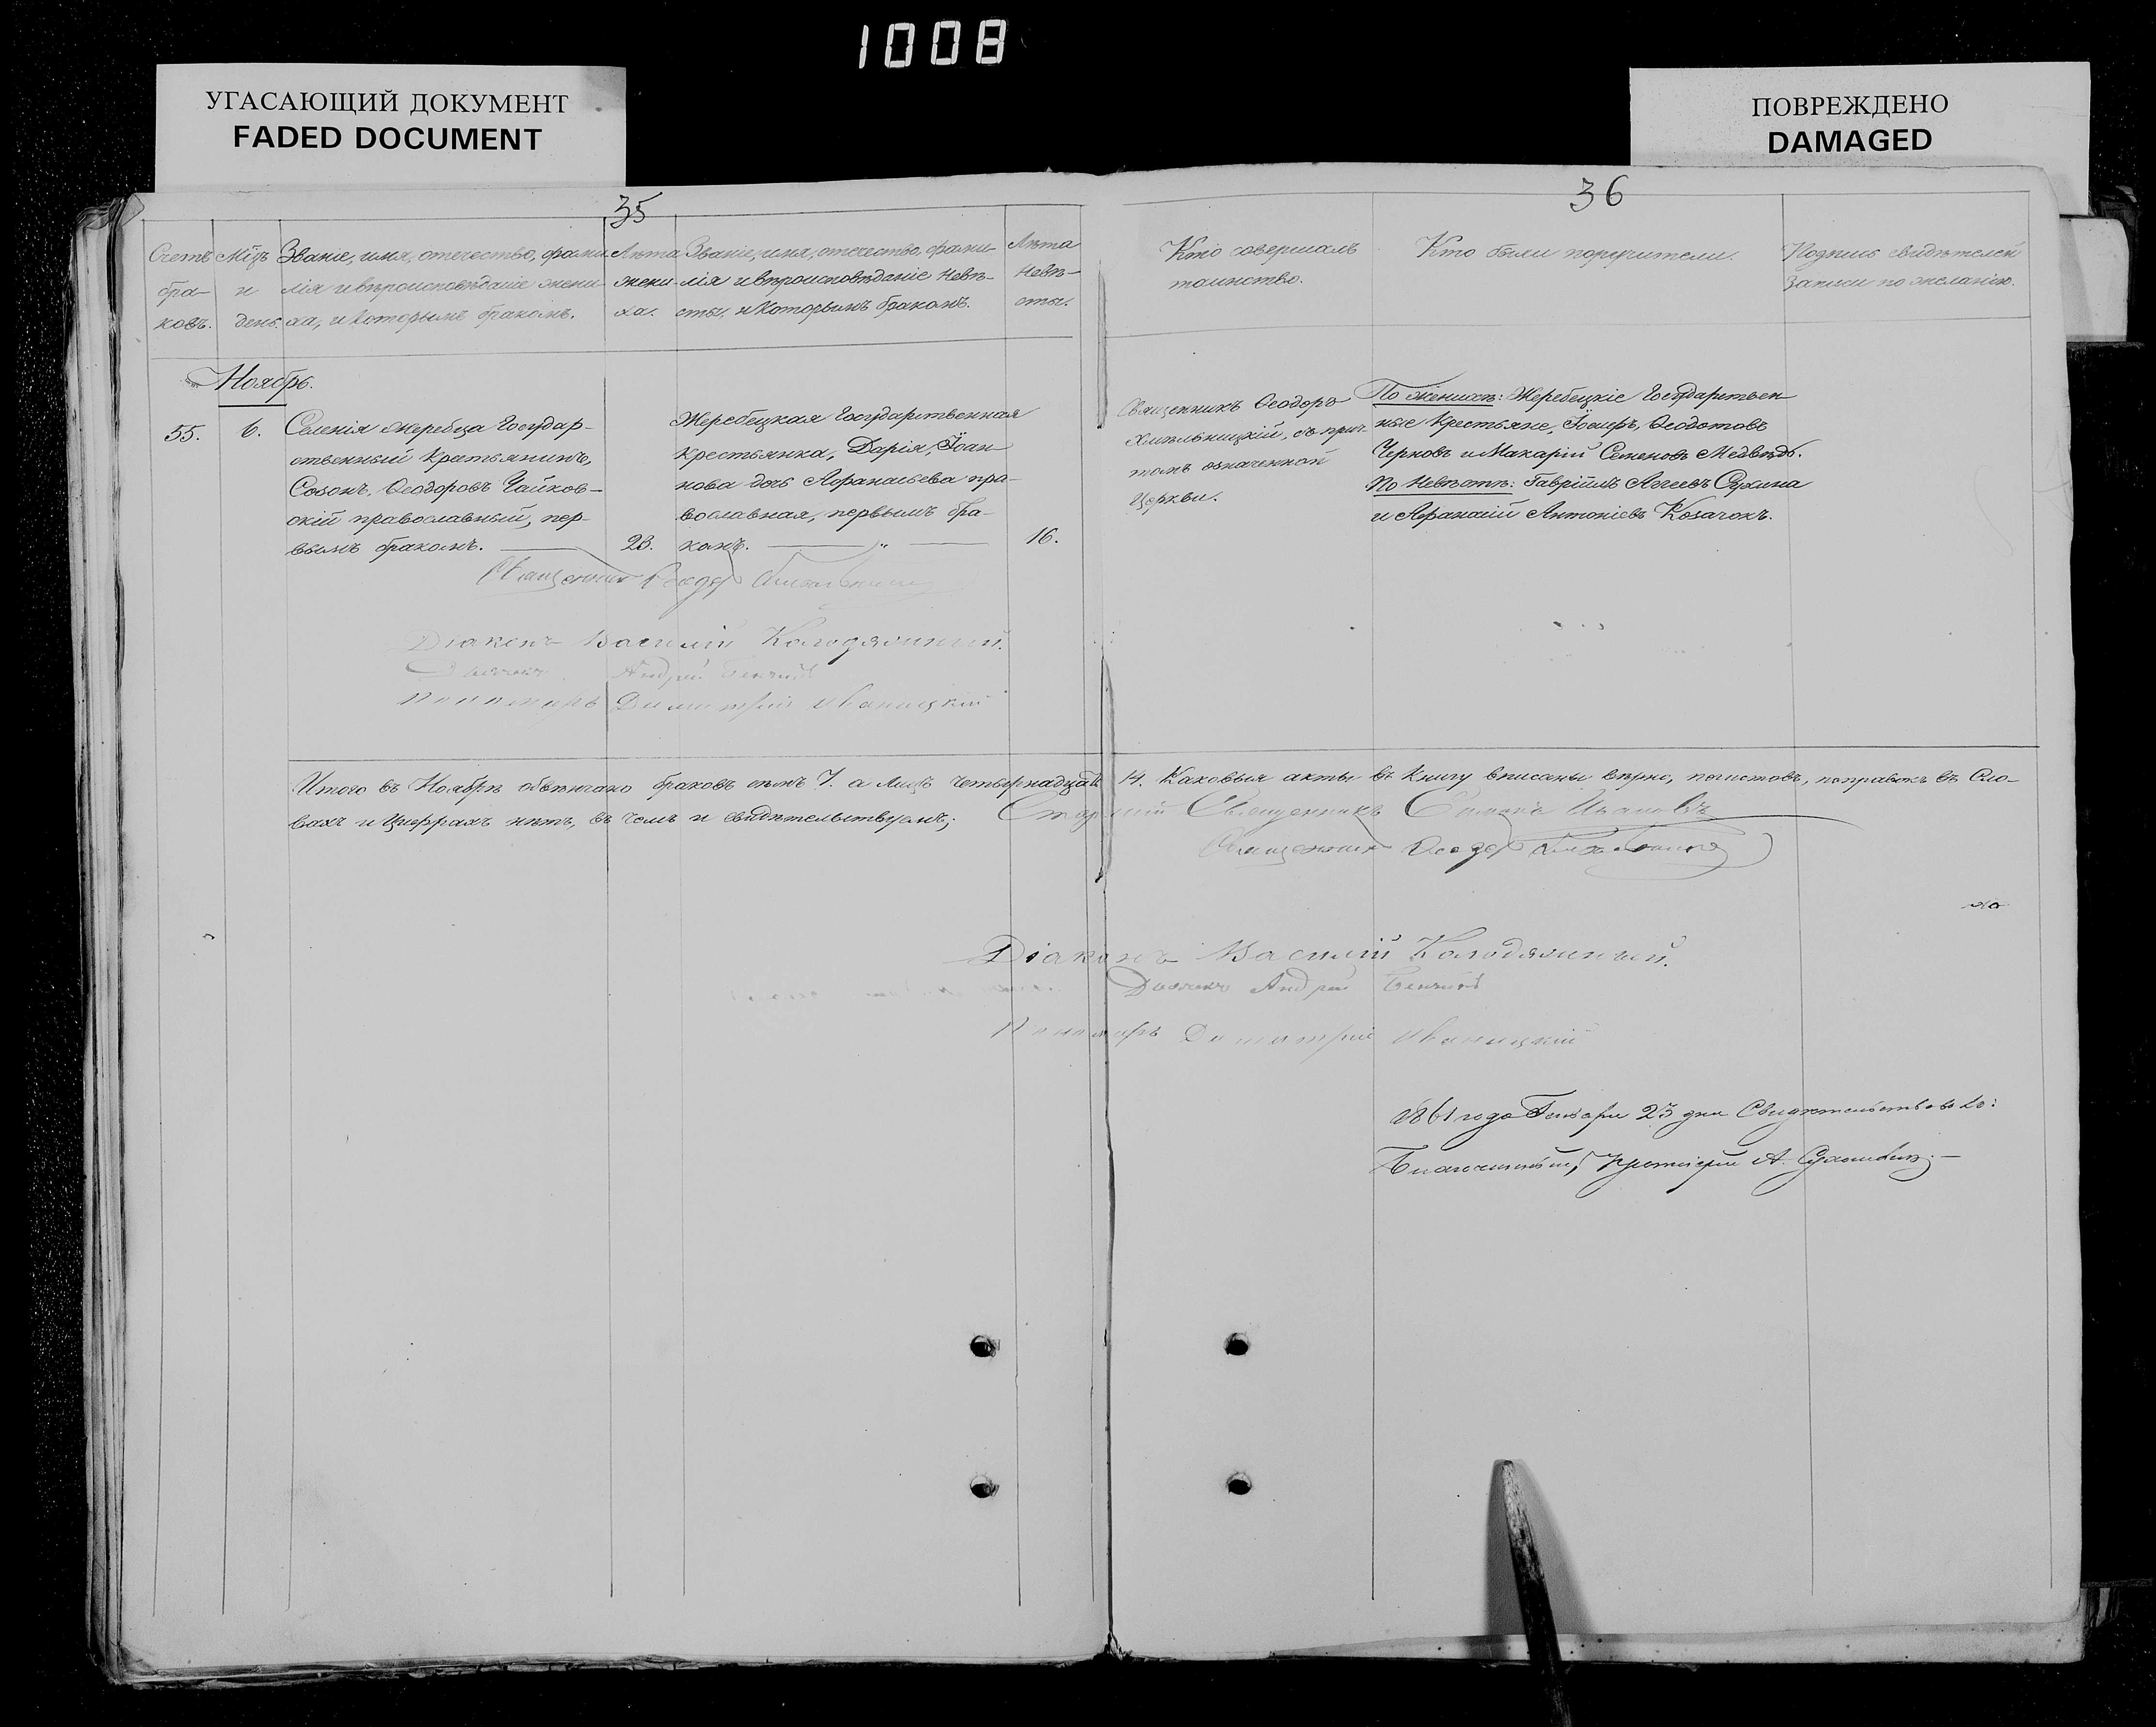 1008
УГАСАЮЩИЙ ДОКУМЕНТ
FADED DOCUMENT
ПОВРЕЖДЕНО
DAMAGED
35
Счетъ бра- ковъ.
Мцъ и день.
Званіе, имя, отечество, фами-
лія и вѣроисповѣданіе жени-
ха, и которымъ бракомъ.
Лѣта жени- ха.
Званіе, имя, отечество, фами-
лія и вѣроисповѣданіе невѣ-
сты, и которымъ бракомъ.
Лѣта невѣ- сты.
36
Кто совершалъ
таинство.
Кто были поручители.
Подпись свидѣтелей
записи по желанію.
Ноябрь.
55.
6.
Селенія Жеребца Государ-
ственный Крестьянинъ,
Созонъ, Ѳеодоровъ Чайков-
скій православный, пер-
вымъ бракомъ.
23.
Жеребецкая Государственная
Крестьянка, Дарія, Іоан-
нова дочь Афанасьева пра-
вославная, первымъ бра-
комъ.
16.
Священникъ Ѳеодоръ
Хмѣльницкій, съ прич-
томъ означенной
Церкви.
По женихѣ: Жеребецкіе Государствен
ные Крестьяне, Ѳеодотовъ
Черновъ и Макарій Семеновъ Медвѣдь.
По Невѣстѣ: Гавріилъ Сухина
и Афанасій Антоніевъ Козачокъ.
Священникъ Ѳеодоръ Хмѣльницкій
Діаконъ Василій Колодяжный.
Дьячокъ Андрей
Пономарь Димитрій Иваницкій
Итого въ Ноябрѣ обвѣнчано браковъ семь 7. а лицъ четырнадцать 14. Каковыя акты въ Книгу вписаны вѣрно, почистовъ, поправокъ въ Сло-
вахъ и Цифрахъ нѣтъ, въ чемъ и свидѣтельствуемъ;
Старшій Священникъ Симеонъ
Священникъ Ѳеодоръ Хмѣльницкій
Діаконъ Василій Колодяжный.
Дьячокъ Андрей
Пономарь Димитрій Иваницкій
1861 года Генваря 23 дня Свидѣтельствовалъ:
Благочинный, Протоіерей А.